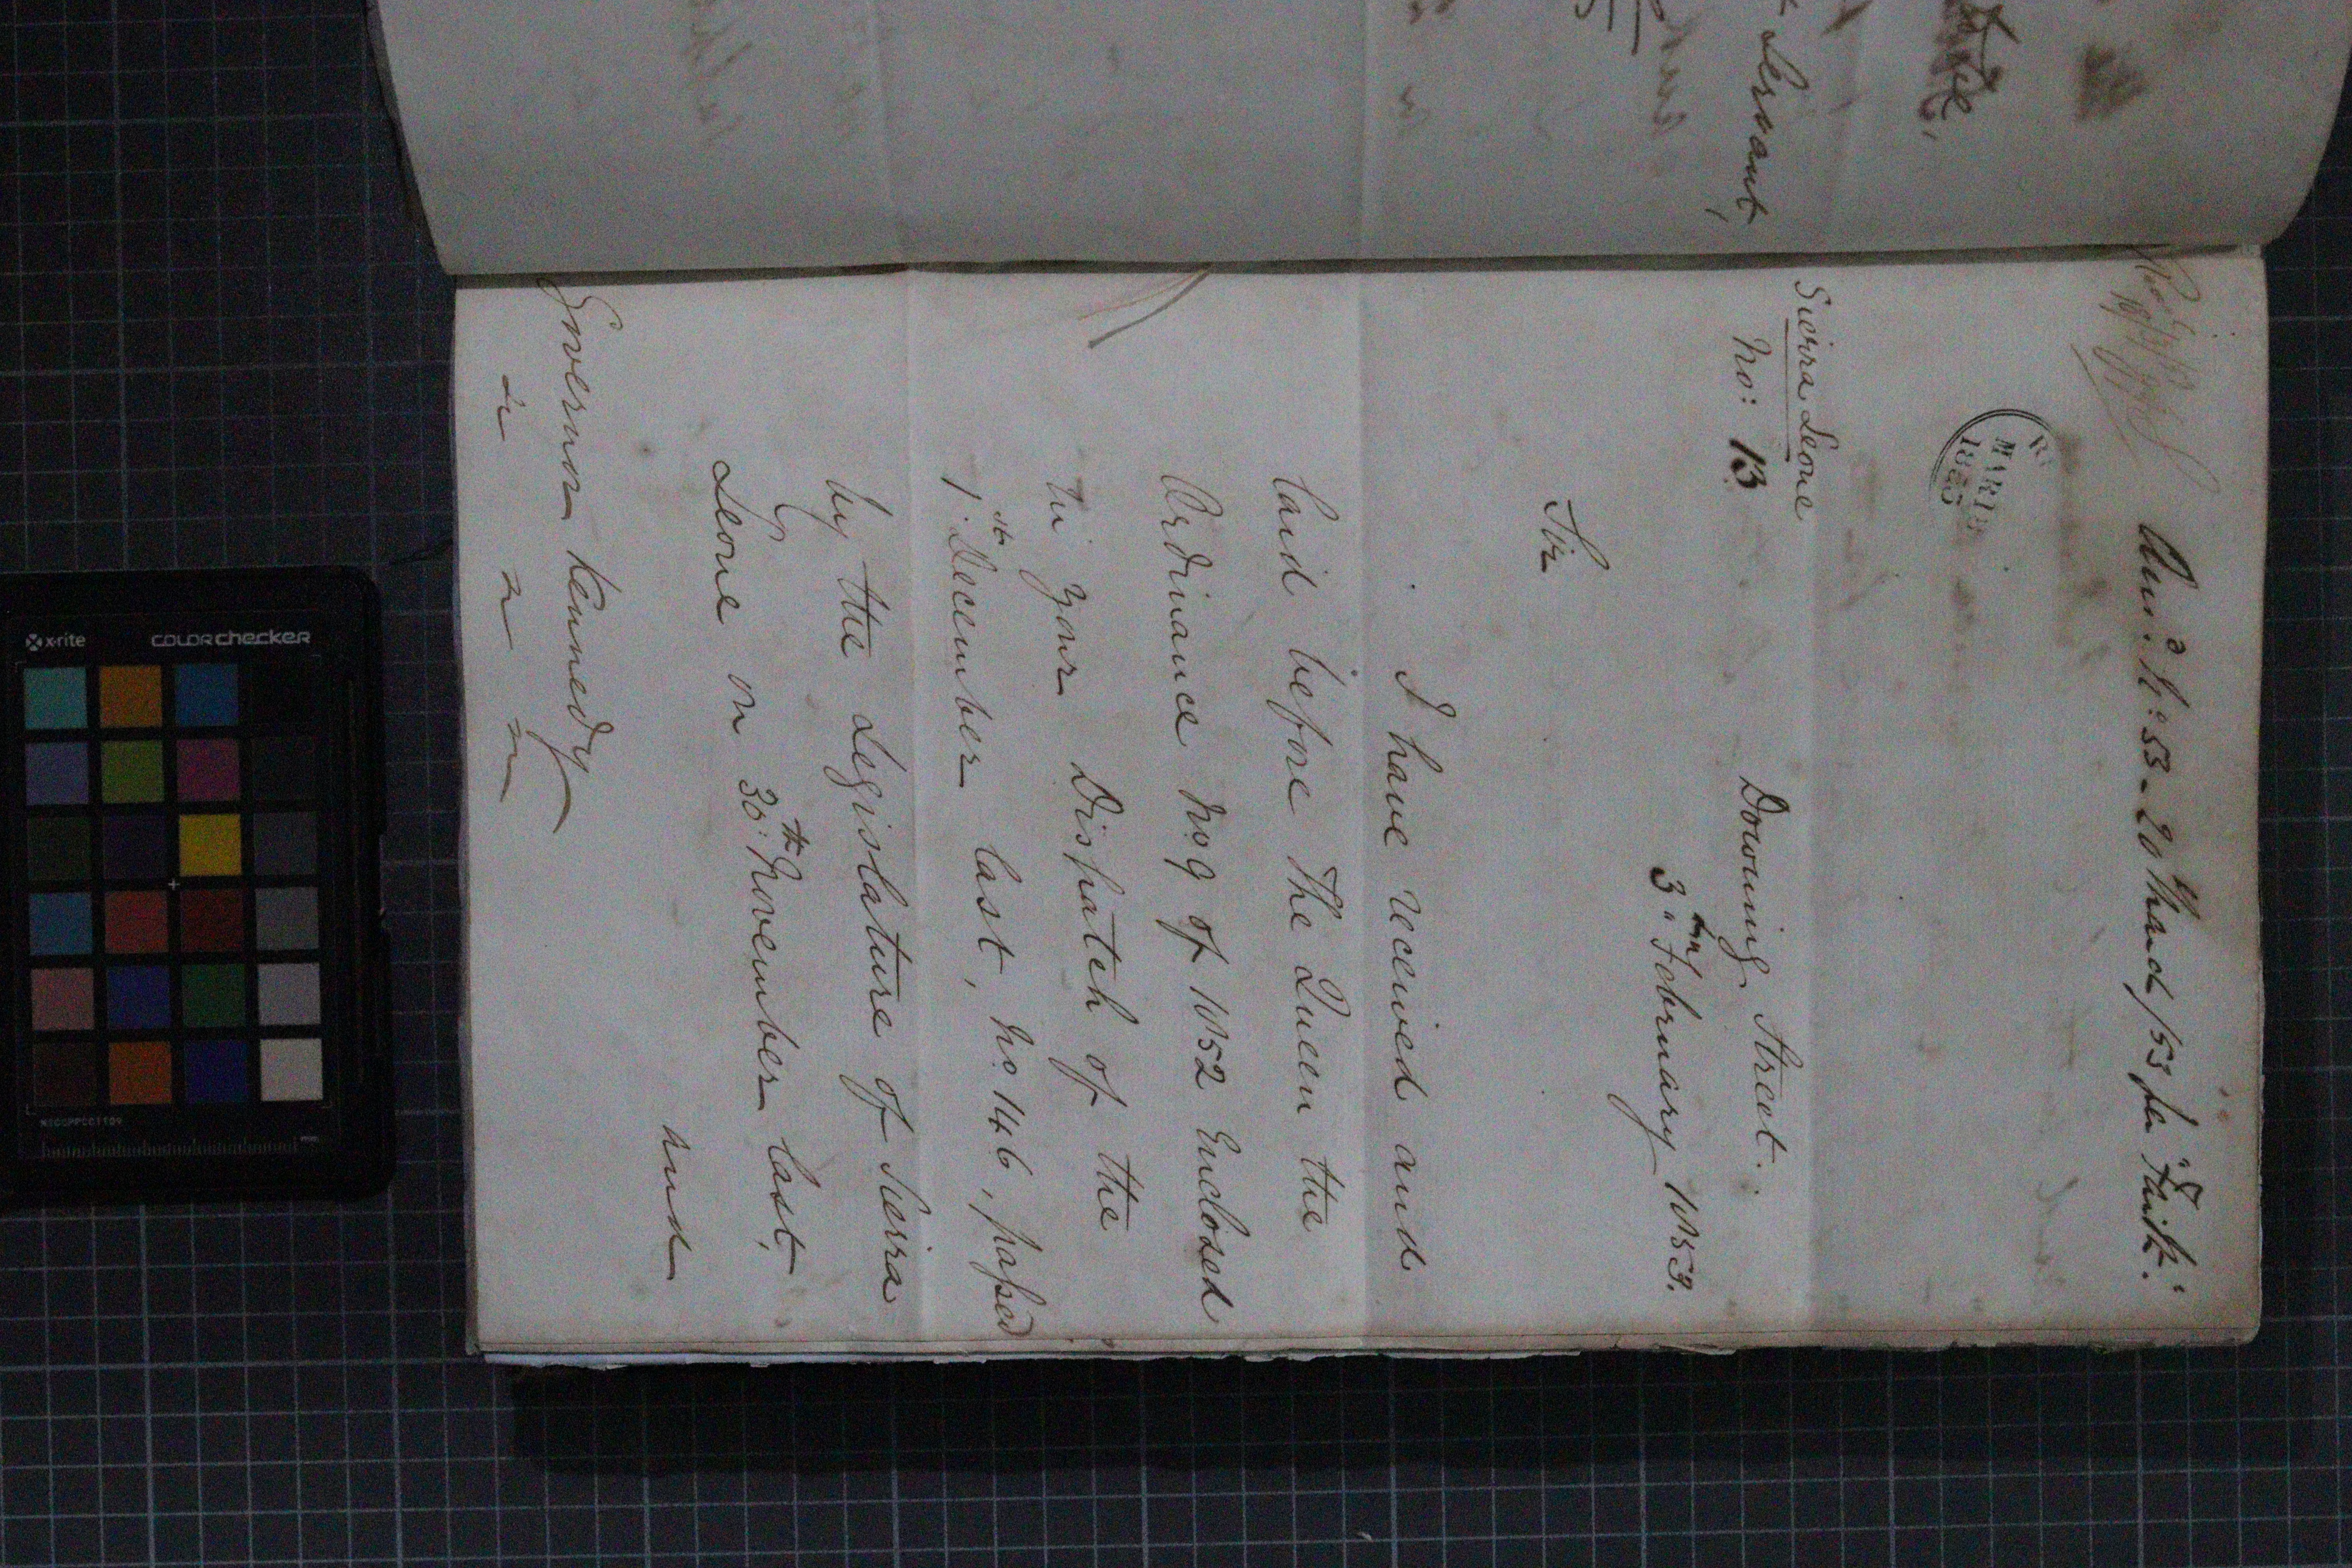 t Servant,
Ansd. No: 53 - 20 March/53 per "Faith".
MAR 18
1853
Sierra Leone
No: 13
Downing Street.
3 February 1853.
Sir
I have received and
laid before The Queen the
Ordinance No. 9 of 1852 Enclosed
in your Dispatch of the
1st December last, No. 146, passed
by the Legislature of Sierra
Leone on 30th November last,
and
Governor Kennedy
&c &c &c
x-rite
colorchecker
mm